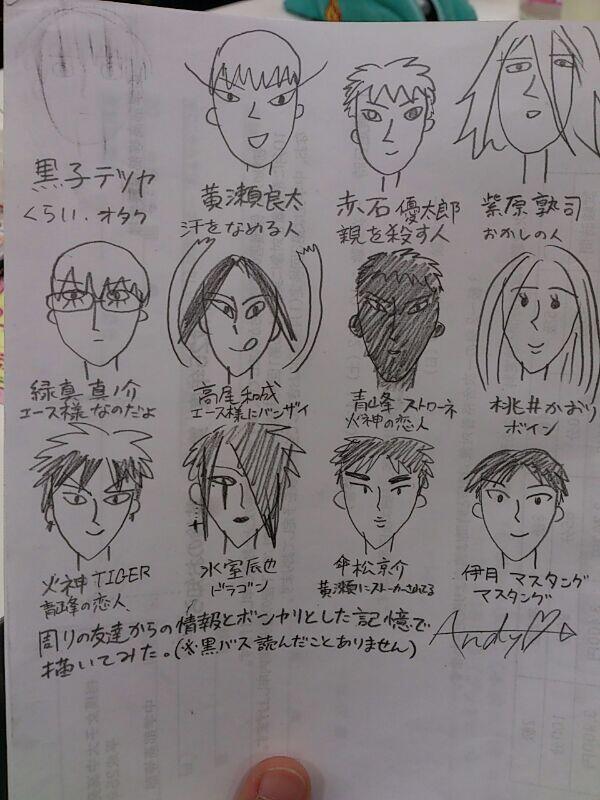 黒子テツヤ
くらい.オタク
黄瀬良太
汗をなめる人
赤石優太郎
親を殺す人
紫原敦司
おかしの人
緑真真ノ介
エース様なのだよ
高尾和成
エース様にバンザイ
青峰ストローネ
火神の恋人
桃井かおり
ボイン
火神TIGER
青峰の恋人
氷室辰也
ドラゴン
傘松京介
黄瀬にストーカーされてる
伊月マスタング
マスタング
周りの友達からの情報とボンヤリとした記憶で
描いてみた。(※黒バス読んだことありません)
Andy